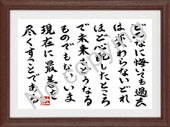 どんなに悔いても過去
は変わらないどれ
ほど心配したところ
で未来もどうなる
ものでもないいま
現在に最善を
尽くすことである